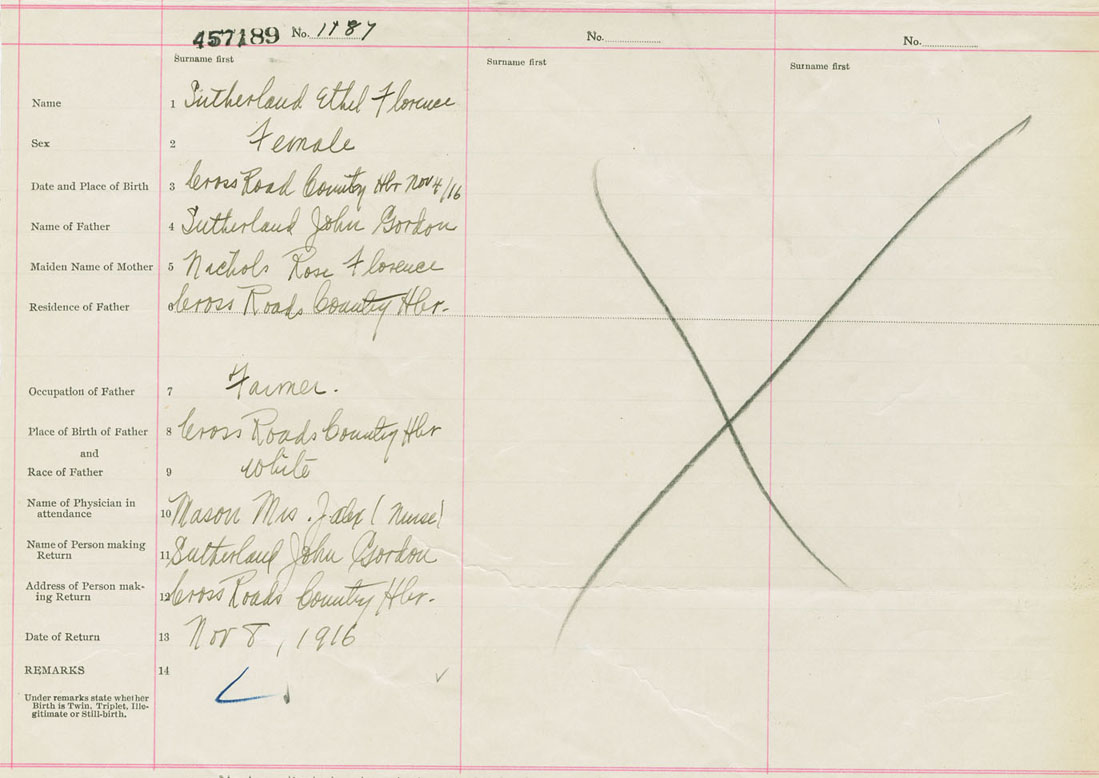 457189 No. 1187
No.
No.
Surname first
Surname first
Surname first
Name 1 Sutherland Ethel Florence
Sex 2 Female
Date and Place of Birth 3 Cross Road Country Hbr Nov 4/16
Name of Father 4 Sutherland John Gordon
Maiden Name of Mother 5 Nachols Rose Florence
Residence of Father 6 Cross Roads Country Hbr.
Occupation of Father 7 Farmer.
Place of Birth of Father 8 Cross Roads Country Hbr
and
Race of Father 9 White
Name of Physician in
attendance 10 Mason Mrs. J alex (nurse)
Name of Person making
Return 11 Sutherland John Gordon
Address of Person mak-
ing Return 12 Cross Roads Country Hbr.
Date of Return 13 Nov 8, 1916
REMARKS 14
Under remarks state whether
Birth is Twin, Triplet, Ille-
gitimate or Still-birth.